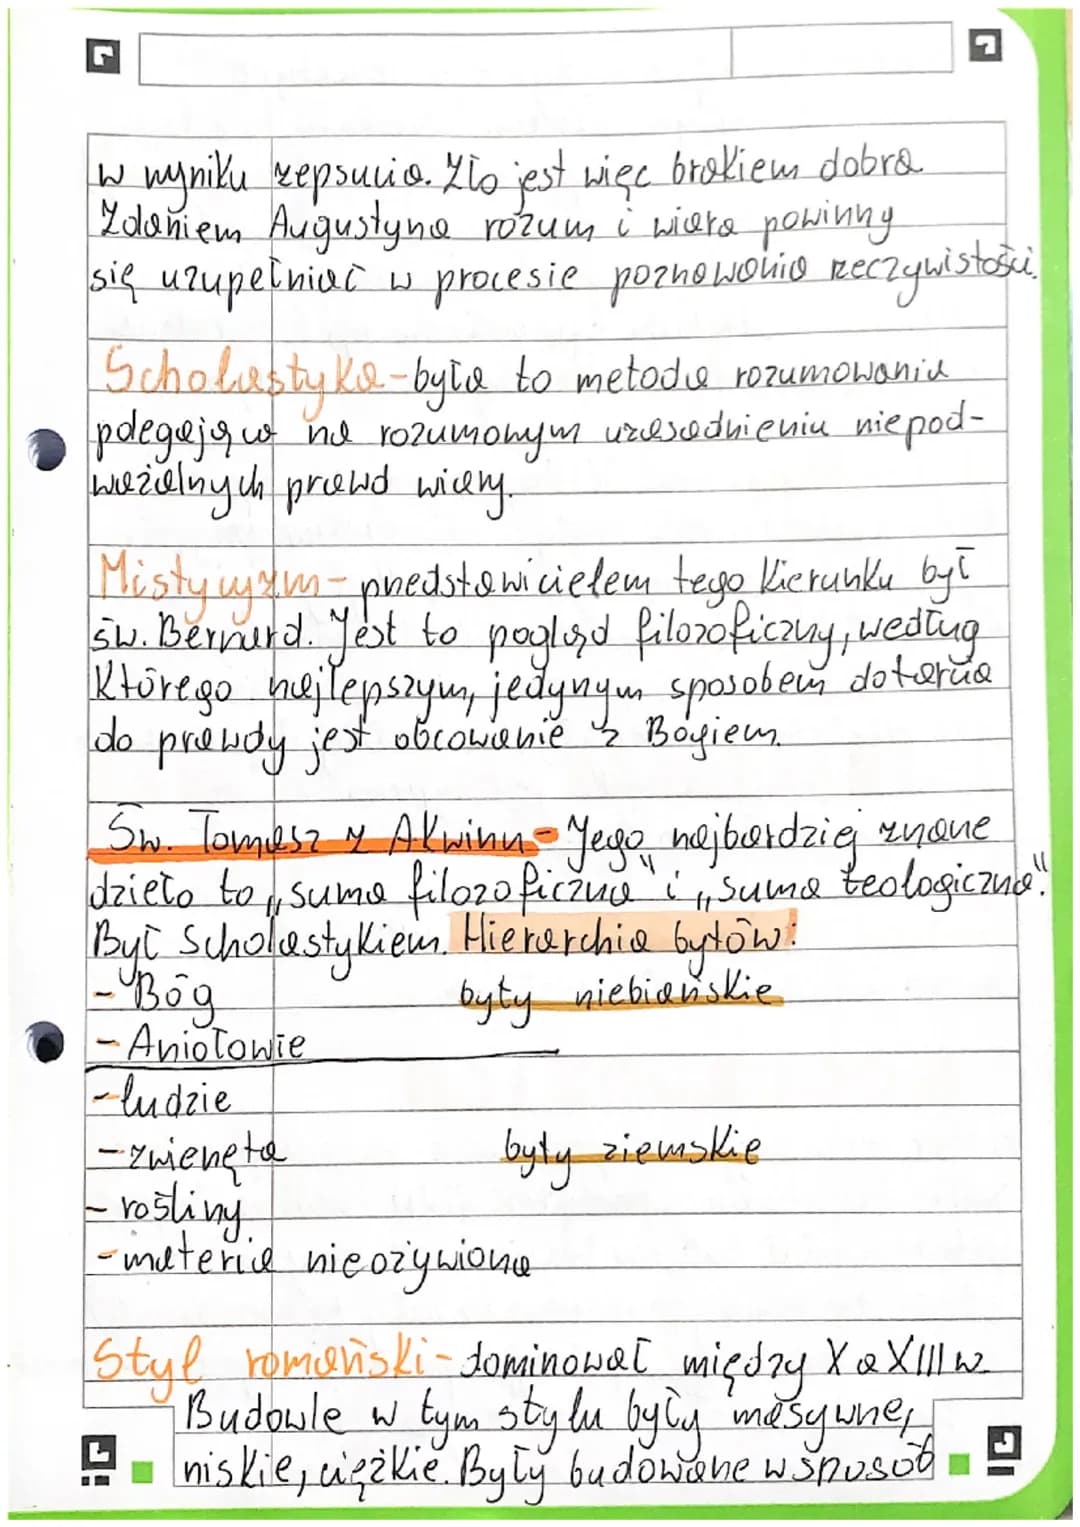 w wyniku zepsucia. Zło jest więc brakiem dobra.
Zdaniem Augustyna rozum i wiara powinny
się uzupełniać w procesie poznawania rzeczywistości.
Scholastyka - była to metoda rozumowania
polegająca na rozumowym uzasadnieniu niepod-
ważalnych prawd wiary.
Mistycyzm - przedstawicielem tego kierunku był
św. Bernard. Jest to pogląd filozoficzny, według
którego najlepszym, jedynym sposobem dotarcia
do prawdy jest obcowanie z Bogiem.
Św. Tomasz z Akwinu - Jego najbardziej znane
dzieło to „suma filozoficzna" i „suma teologiczna".
Był Scholastykiem. Hierarchia bytów:
- Bóg byty niebiańskie
- Aniołowie
- ludzie
- zwierzęta byty ziemskie
- rośliny
- materia nieożywiona
Styl romański - dominował między X a XIII w
Budowle w tym stylu były masywne,
niskie, ciężkie. Były budowane w sposób